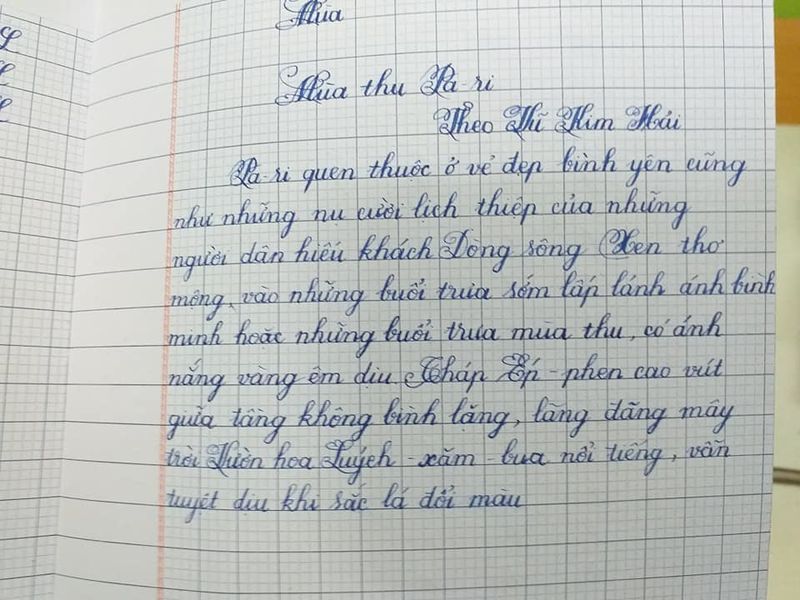 Mùa
Mùa thu Pa-ri
Theo Thĩ Kim Hải
Pa-ri quen thuộc ở vẻ đẹp bình yên cũng
như những nụ cười lich thiệp của những
người dân hiếu khách Dòng sông Xen thơ
mộng, vào những buổi trưa sớm lấp lánh ánh bình
minh hoặc những buổi trưa mùa thu, có ánh
nắng vàng êm dịu, Tháp Ép-phen cao vút
giữa tầng không bình lặng, lãng đãng mây
trời Vườn hoa Luých-xăm-bua nổi tiếng, vẫn
tuyệt dịu khi sắc lá đổi màu